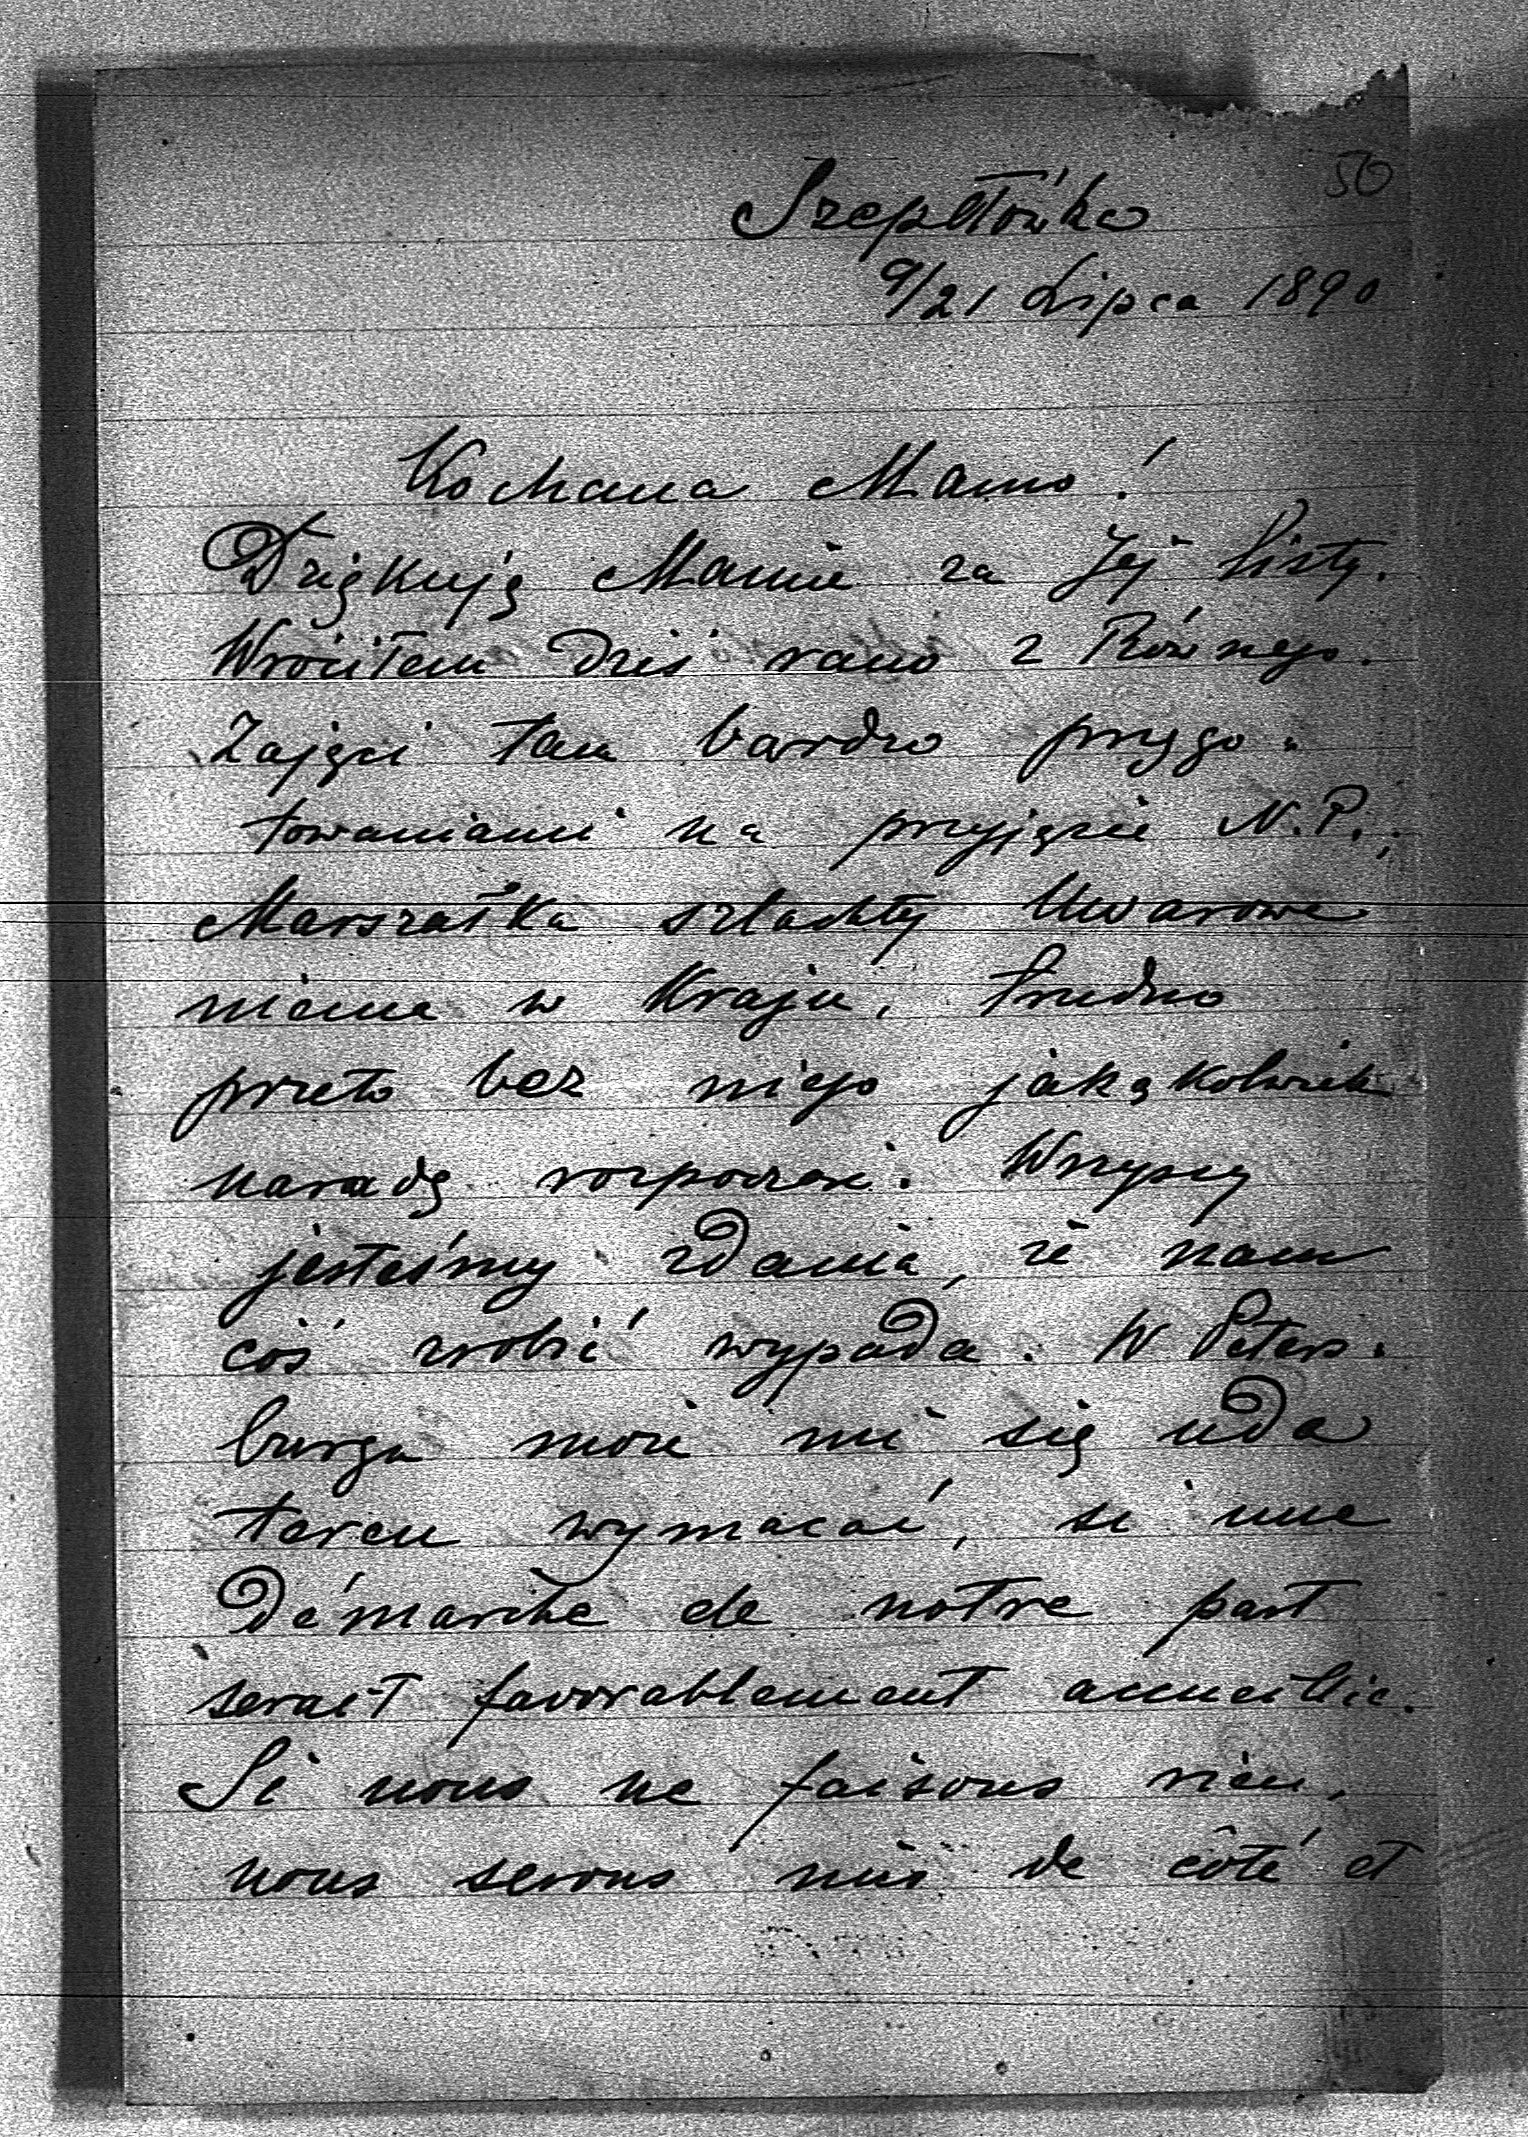 50
Szepetówka
9/21 Lipca 1890
Kochana Mamo!
Dziękuję Mamie za Jej listy.
Wróciłem dziś rano z Równego.
Zajęci tam bardzo przygo-
towaniami na przyjęcie N. P.;
Marszałka szlachty Uwarowa
niema w Kraju, trudno
przeto bez niego jakąkolwiek
naradę rozpocząć. Wszyscy
jesteśmy zdania, że nam
coś zrobić wypada. W Peters-
burgu może mi się uda
teren wymacać, si une
démarche de notre part
serait favorablement accueillie.
Si nous ne faisons rien,
nous serons mis de côté et